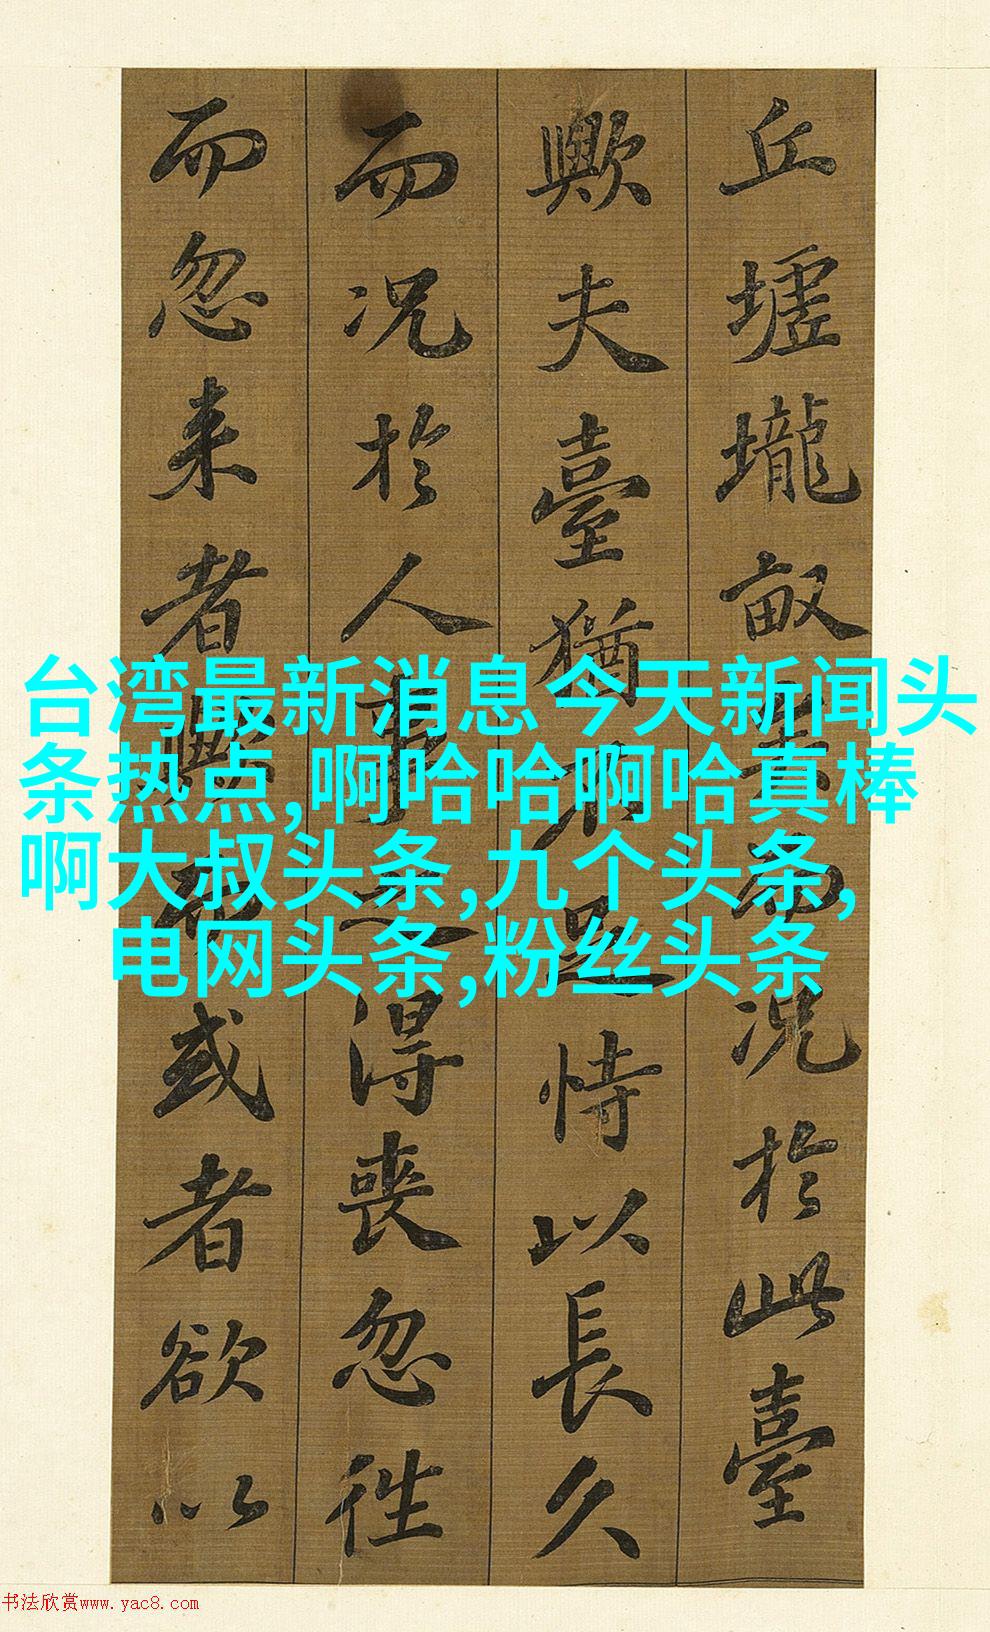 丘墟壠畝矣而況於此臺
歟夫臺猶不足恃以長久
而况於人事之得喪忽往
而忽来者歟而或者欲以
台湾最新消息今天新闻头
条热点,啊哈哈啊哈真棒
啊大叔头条,九个头条,
电网头条,粉丝头条
书法欣赏www.yac8.com